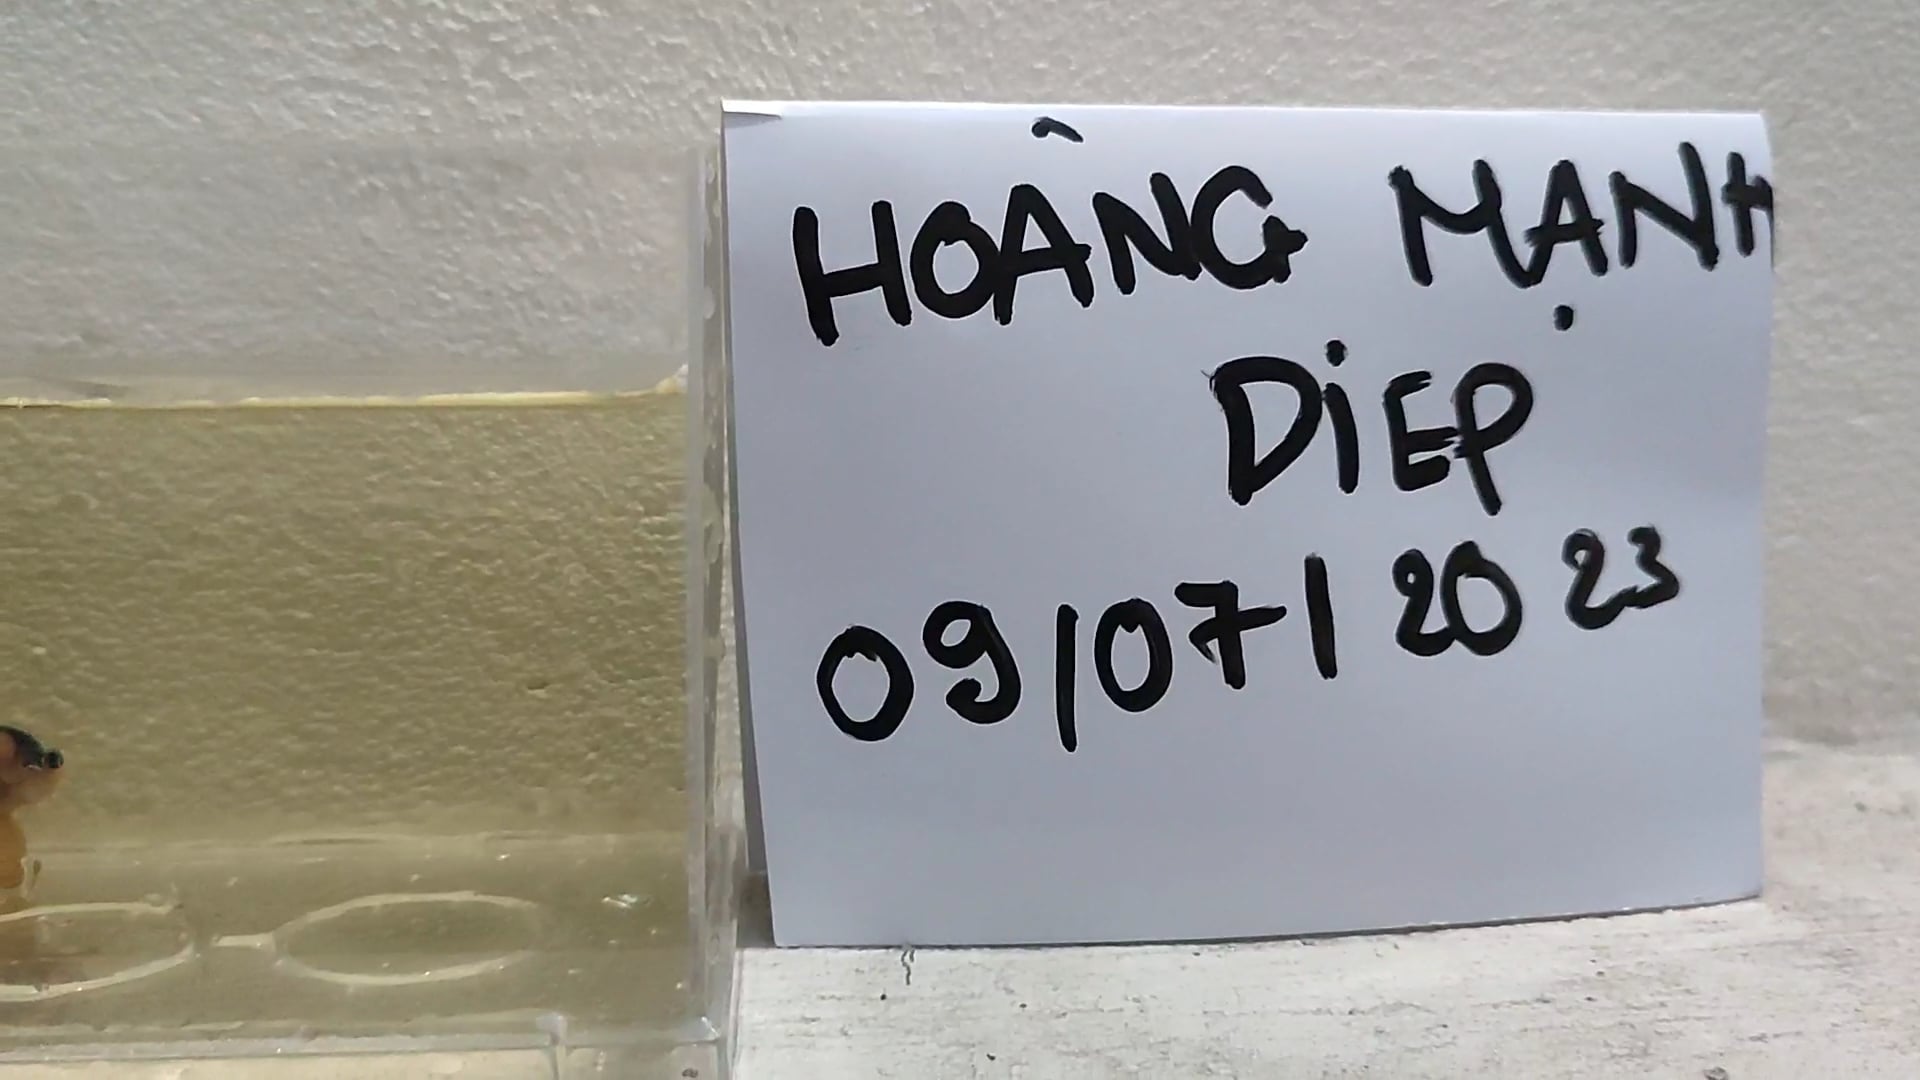 HOÀNG MẠNH
DiEP
09/07/2023